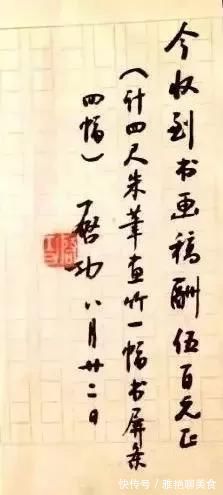 今收到书画稿酬伍百元正
（计四尺朱笔画竹一幅书屏条
四幅）启功八月廿二日
快传号/雅艳聊美食